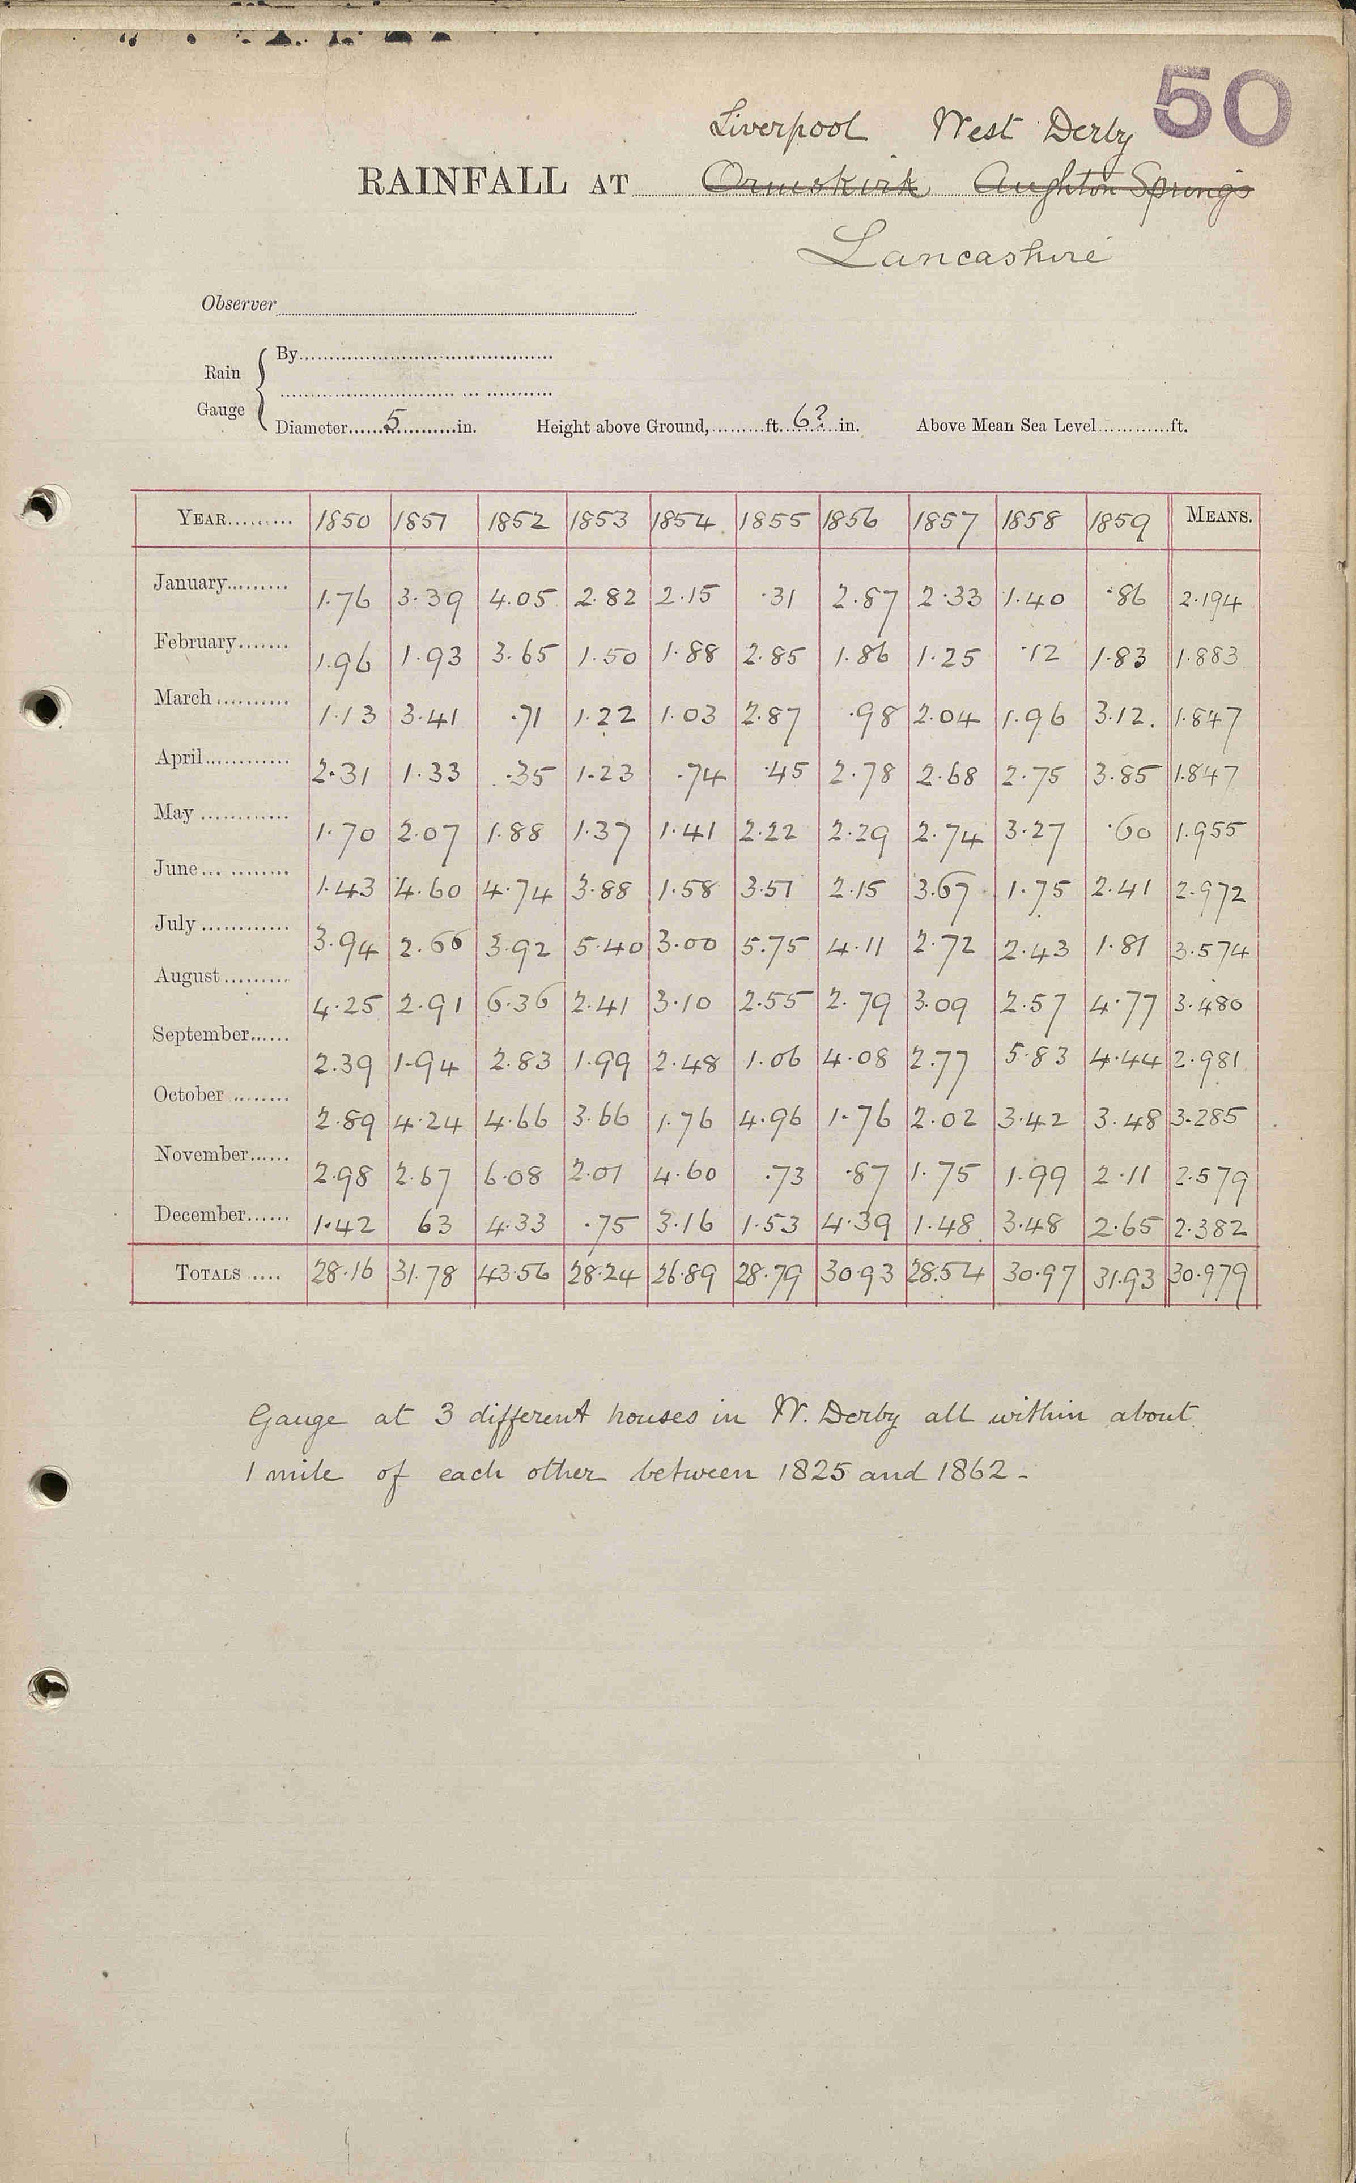 50
Liverpool West Derby
RAINFALL AT Ormskirk Aughton Springs
Lancashire
Observer
Rain Gauge { By
Diameter 5 in. Height above Ground, ft. 6? in. Above Mean Sea Level ft.
YEAR 1850 1851 1852 1853 1854 1855 1856 1857 1858 1859 MEANS.
January 1.76 3.39 4.05 2.82 2.15 .31 2.87 2.33 1.40 .86 2.194
February 1.96 1.93 3.65 1.50 1.88 2.85 1.86 1.25 .12 1.83 1.883
March 1.13 3.41 .71 1.22 1.03 2.87 .98 2.04 1.96 3.12. 1.847
April 2.31 1.33 .35 1.23 .74 .45 2.78 2.68 2.75 3.85 1.847
May 1.70 2.07 1.88 1.37 1.41 2.22 2.29 2.74 3.27 .60 1.955
June 1.43 4.60 4.74 3.88 1.58 3.51 2.15 3.67 1.75 2.41 2.972
July 3.94 2.66 3.92 5.40 3.00 5.75 4.11 2.72 2.43 1.81 3.574
August 4.25 2.91 6.36 2.41 3.10 2.55 2.79 3.09 2.57 4.77 3.480
September 2.39 1.94 2.83 1.99 2.48 1.06 4.08 2.77 5.83 4.44 2.981
October 2.89 4.24 4.66 3.66 1.76 4.96 1.76 2.02 3.42 3.48 3.285
November 2.98 2.67 6.08 2.01 4.60 .73 .87 1.75 1.99 2.11 2.579
December 1.42 63 4.33 .75 3.16 1.53 4.39 1.48 3.48 2.65 2.382
TOTALS 28.16 31.78 43.56 28.24 26.89 28.79 30.93 28.54 30.97 31.93 30.979
Gauge at 3 different houses in W. Derby all within about
1 mile of each other between 1825 and 1862 -